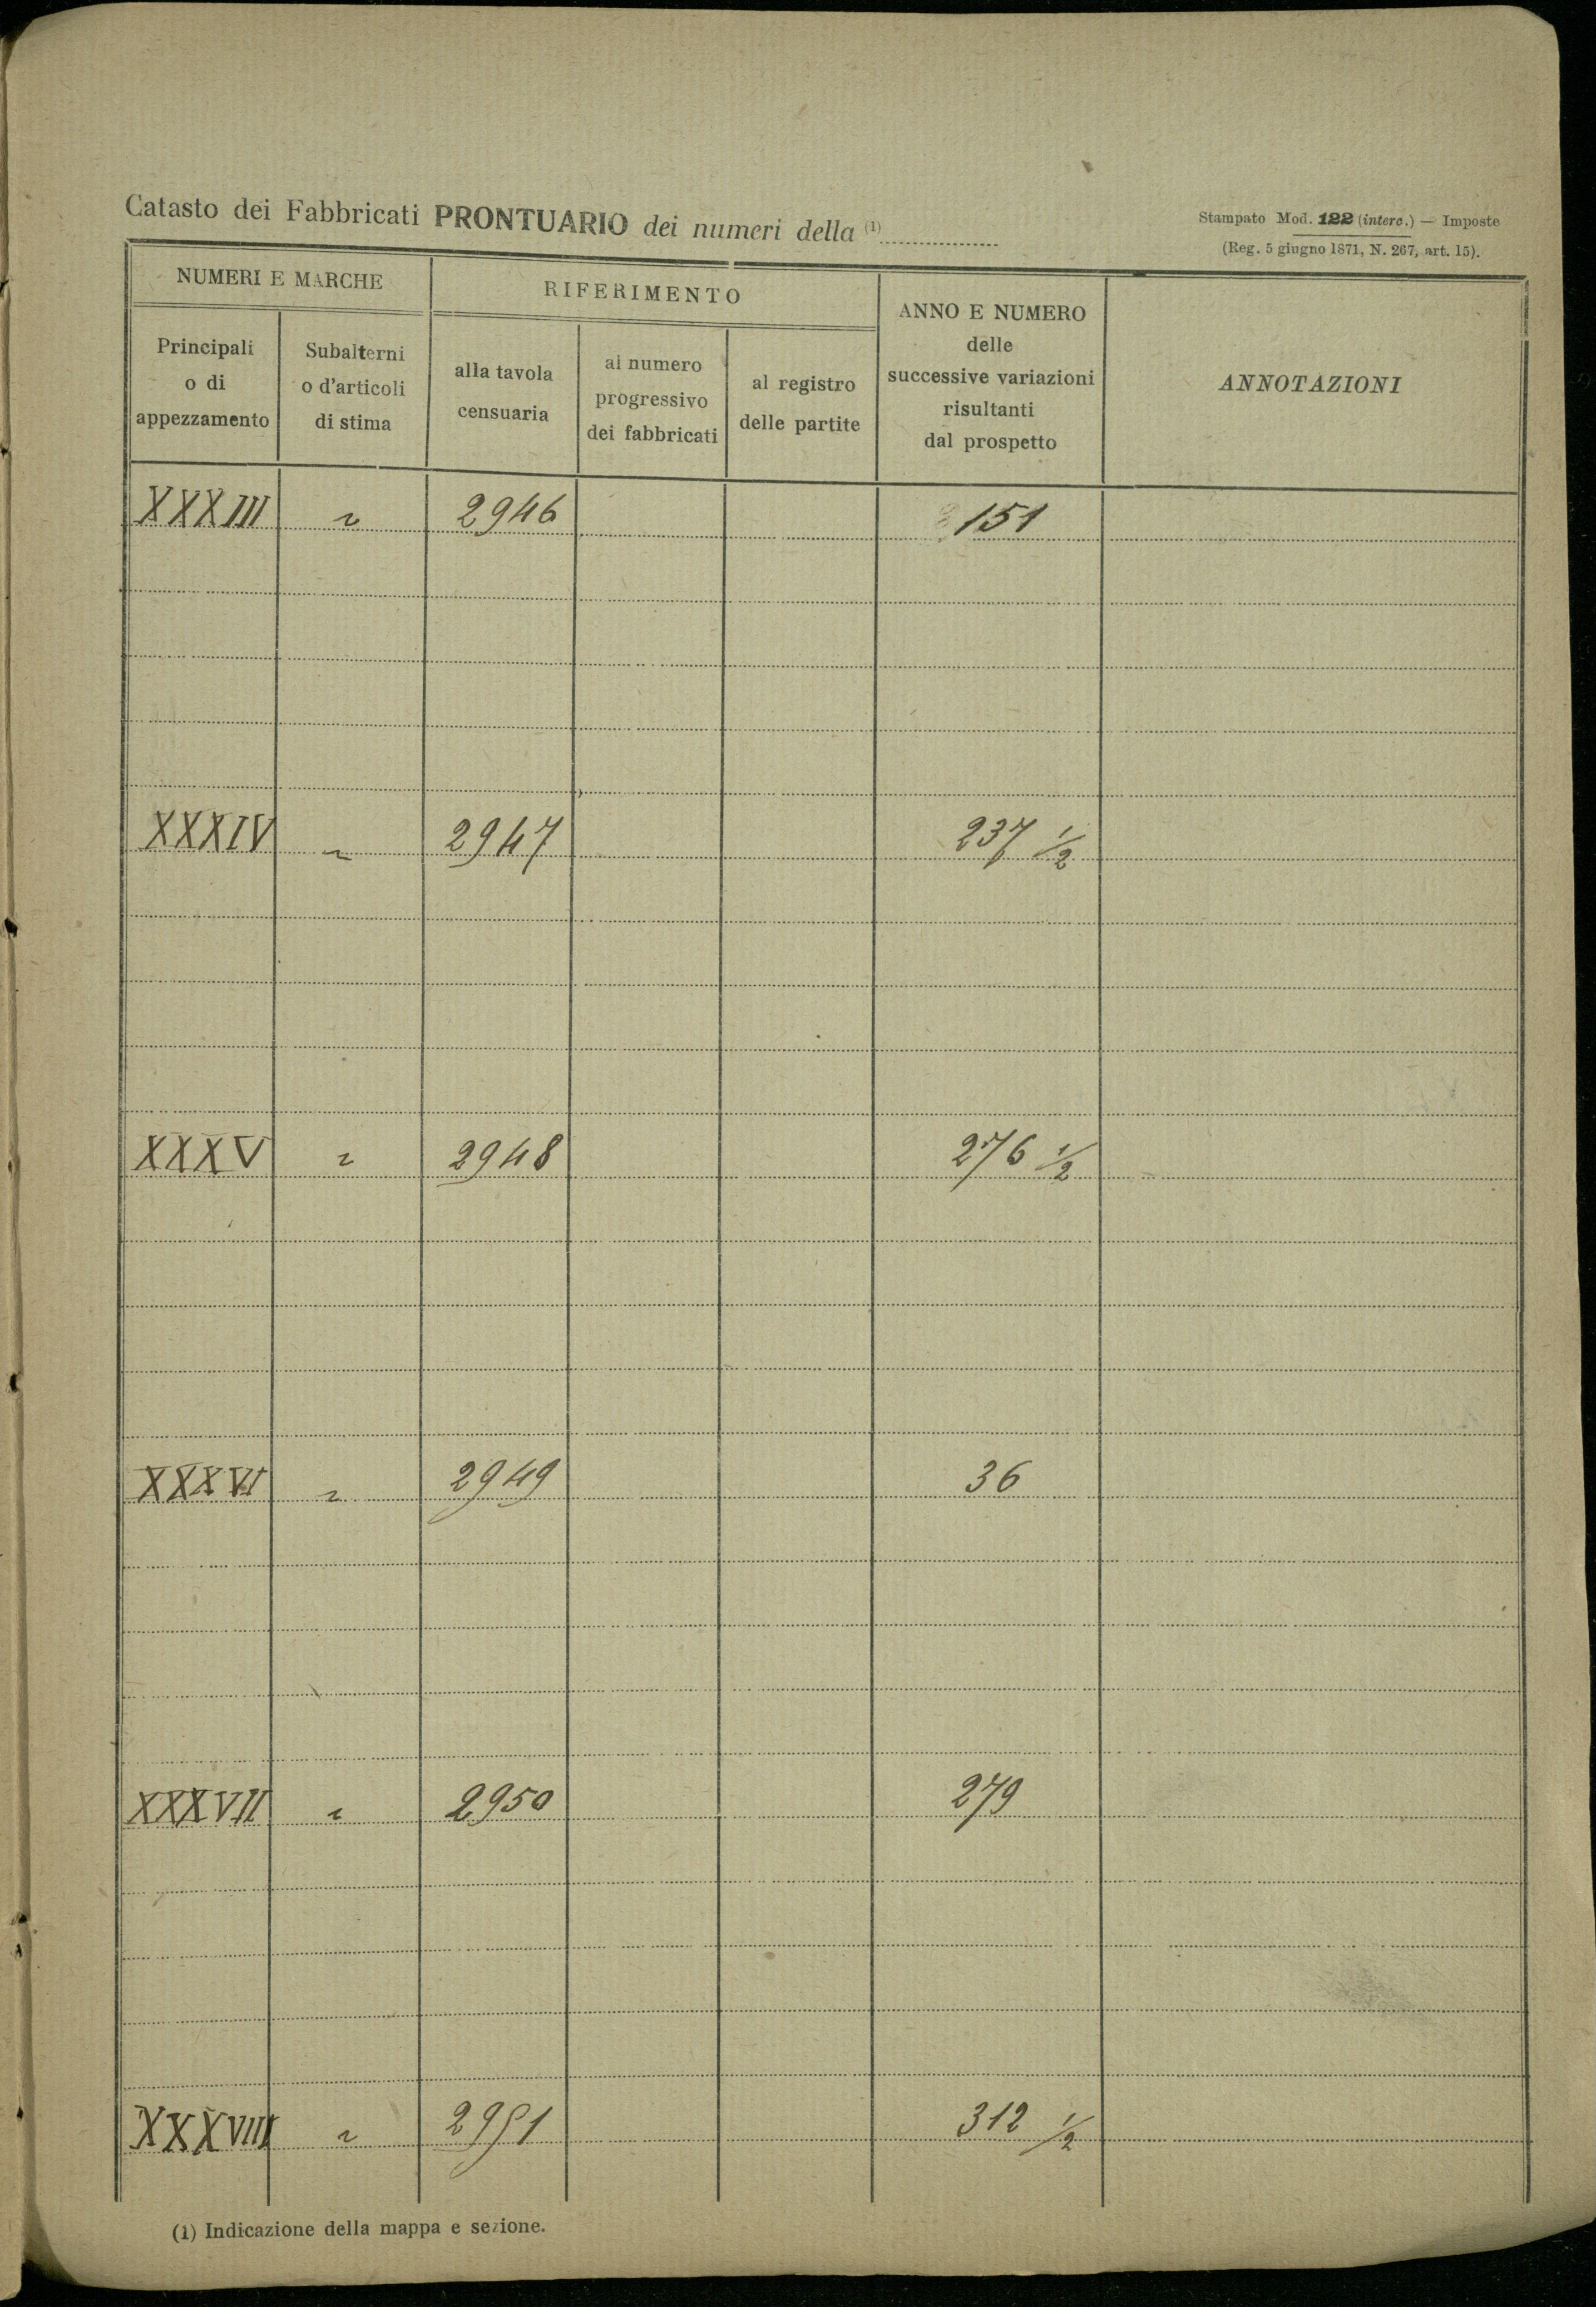 Catasto dei Fabbricati PRONTUARIO dei numeri della (1)
Stampato Mod. 122 (interc.) — Imposte
(Reg. 5 giugno 1871, N. 267, art. 15).
NUMERI E MARCHE
RIFERIMENTO
ANNO E NUMERO
delle
successive variazioni
risultanti
dal prospetto
ANNOTAZIONI
Principali
o di
appezzamento
Subalterni
o d'articoli
di stima
alla tavola
censuaria
al numero
progressivo
dei fabbricati
al registro
delle partite
XXXIII 2946 151
XXXIV 2947 237 1/2
XXXV 2948 276 1/2
XXXVI 2949 36
XXXVII 2950 279
XXXVIII 2951 312 1/2
(1) Indicazione della mappa e sezione.